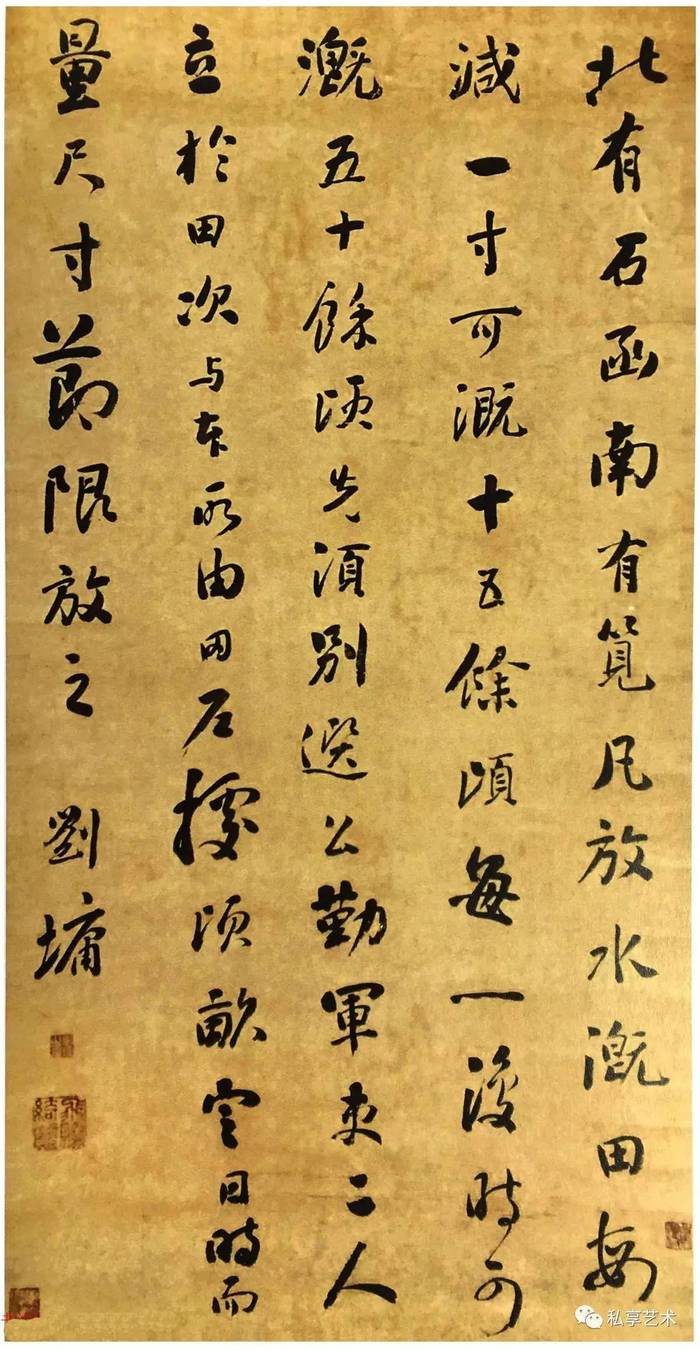 北有石函南有筧凡放水溉田每
減一寸可溉十五餘頃每一復時可
溉五十餘頃先須別選公勤軍吏二人
立於田次与本所由田户據頃畝定日時而
量尺寸節限放之 劉墉
私享艺术